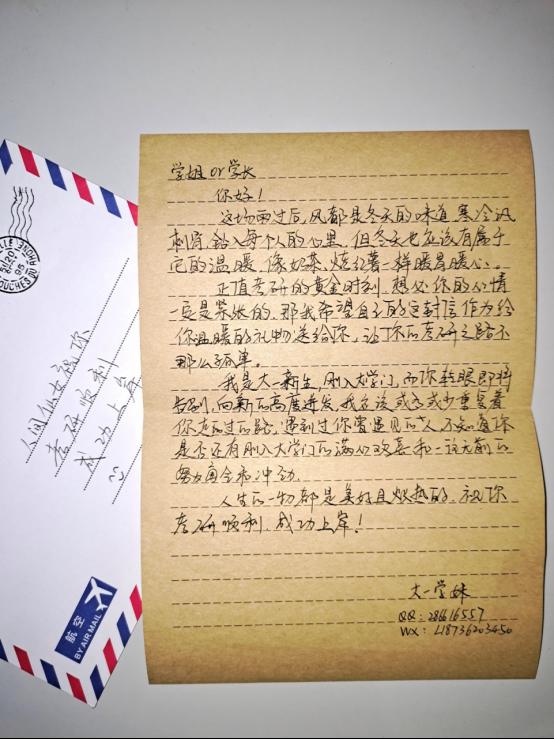 学姐 or 学长
你好!
这场雨过后,风都是冬天的味道,寒冷讯
刺骨,钻入每个人的心里,但冬天也应该有属于
它的温暖,像奶茶、烤红薯一样暖胃暖心。
正值考研的黄金时刻,想必你的心情
一定是紧张的,那我希望自己的这封信作为给
你温暖的礼物送给你,让你的考研之路不
那么孤单。
我是大一新生,刚入大学门,而你转眼即将
告别,向新的高度进发,我应该或多或少重复着
你走过的路,遇到过你曾遇见的人,不知道你
是否还有刚入大学门的满心欢喜和一往无前的
努力
人生的一切都是美好且炽热的,祝你
考研顺利,成功上岸!
大一学妹
QQ: 286616557
WX: L18736203450
人间仙女祝你
考研顺利
成功上岸
航空
BY AIR MAIL